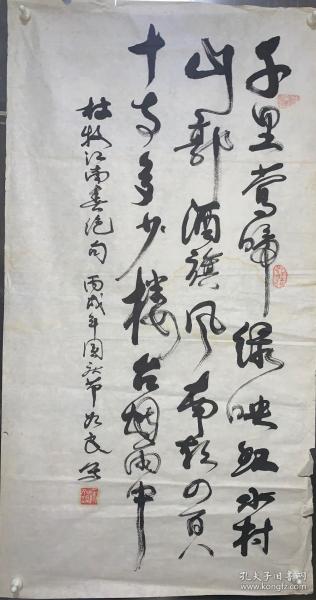 千里莺啼绿映红水村
山郭酒旗风南朝四百八
十寺多少楼台烟雨中
杜牧江南春绝句 丙戌年国庆节
孔夫子旧书网